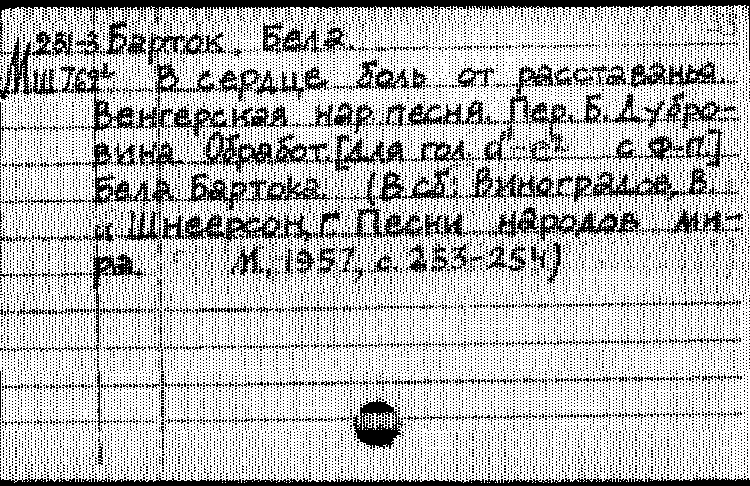 М 231-3 Барток, Бела.
Ш 769 В сердце боль от расставанья.
Венгерская нар. песня. Пер. Б. Дубро-
вина. Обработ. [Для гол. с ф-п.]
Бела Бартока. (В сб.: Виноградов, В.
и Шнеерсон, Г. Песни народов ми-
ра. М., 1957, с. 253-254)